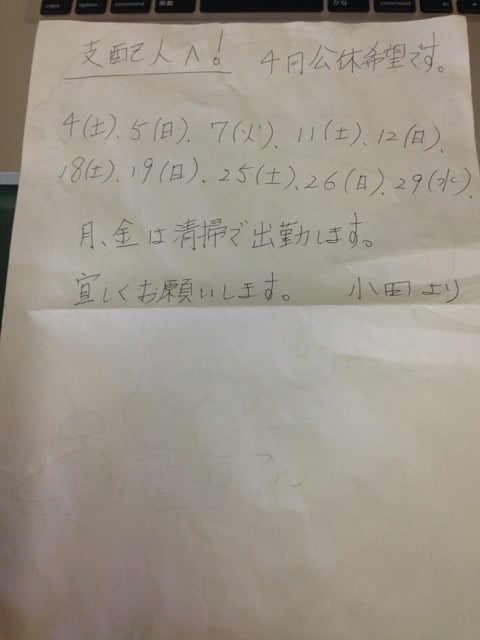 caps option 英数 command かな command fn alt
支配人へ! 4月公休希望です。
4(土)、5(日)、7(火)、11(土)、12(日)、
18(土)、19(日)、25(土)、26(日)、29(水)、
月、金は清掃で出勤します。
宜しくお願いします。 小田より